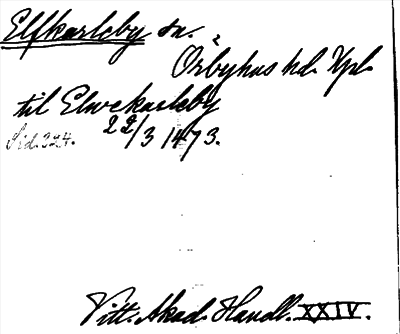 Elfkarleby sn.
Örbyhus hd. Upl.
til Elwekarleby
Sid. 324. 22/3 1473.
Vitt. Akad. Handl. XXIV.